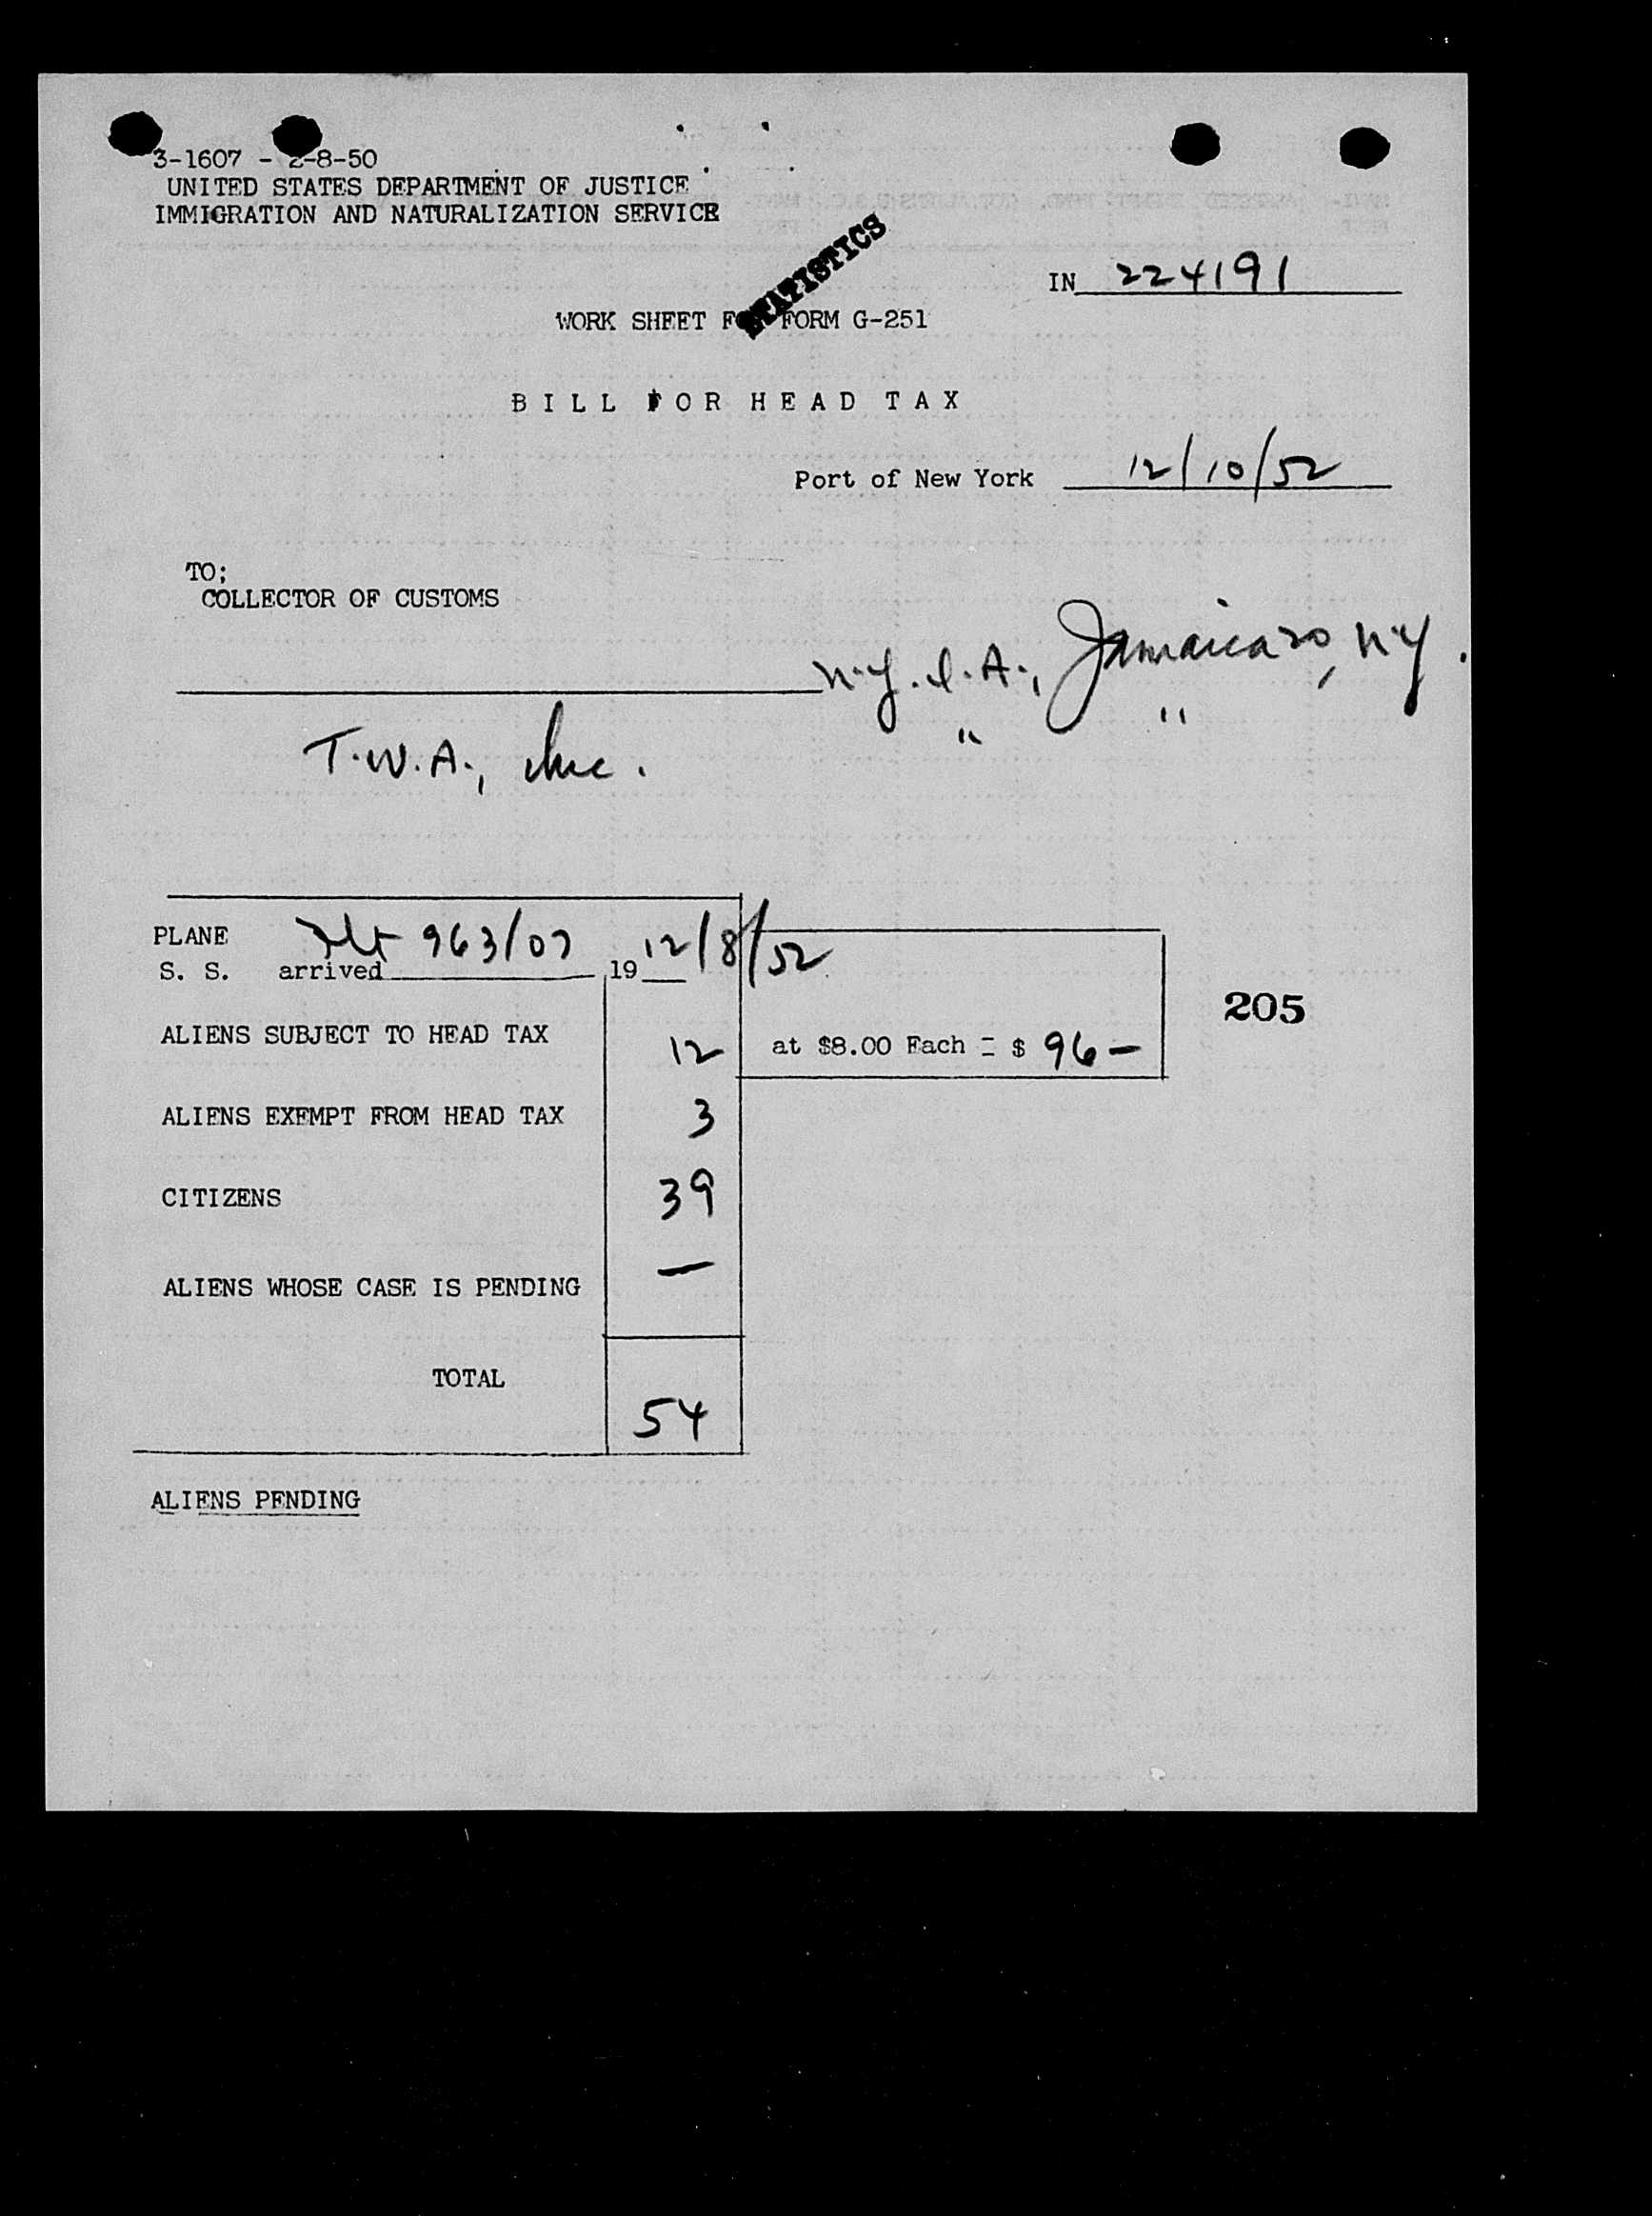 3-1607 - 2-8-50
UNITED STATES DEPARTMENT OF JUSTICE
IMMIGRATION AND NATURALIZATION SERVICE
STATISTICS
IN 224191
WORK SHEET FOR FORM G-251
BILL FOR HEAD TAX
Port of New York 12/10/52
TO;
COLLECTOR OF CUSTOMS
N.Y.I.A., Jamaica 30, N.Y.
T.W.A., Inc. " "
PLANE Flt 963/07 12/8/52
S. S. arrived 19
ALIENS SUBJECT TO HEAD TAX 12 at $8.00 Each = $ 96 —
205
ALIENS EXEMPT FROM HEAD TAX 3
CITIZENS 39
ALIENS WHOSE CASE IS PENDING —
TOTAL 54
ALIENS PENDING